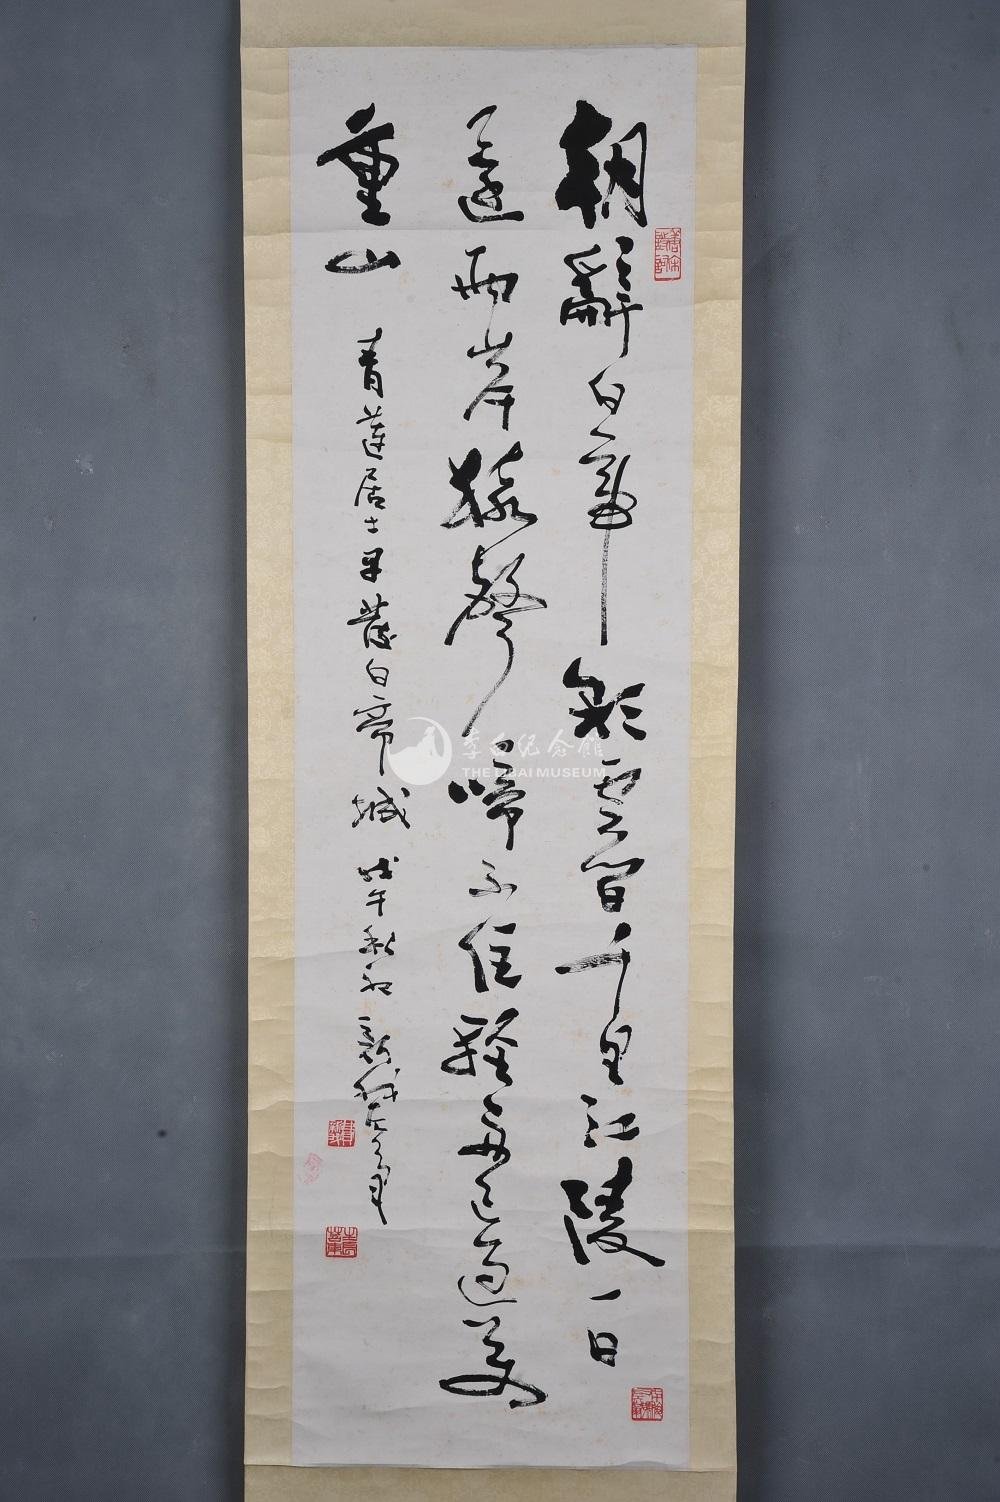 朝辞白帝彩云间千里江陵一日
还两岸猿声啼不住轻舟已过万
重山
青莲居士早发白帝城 戊午秋初
李白纪念馆
THE LIBAI MUSEUM